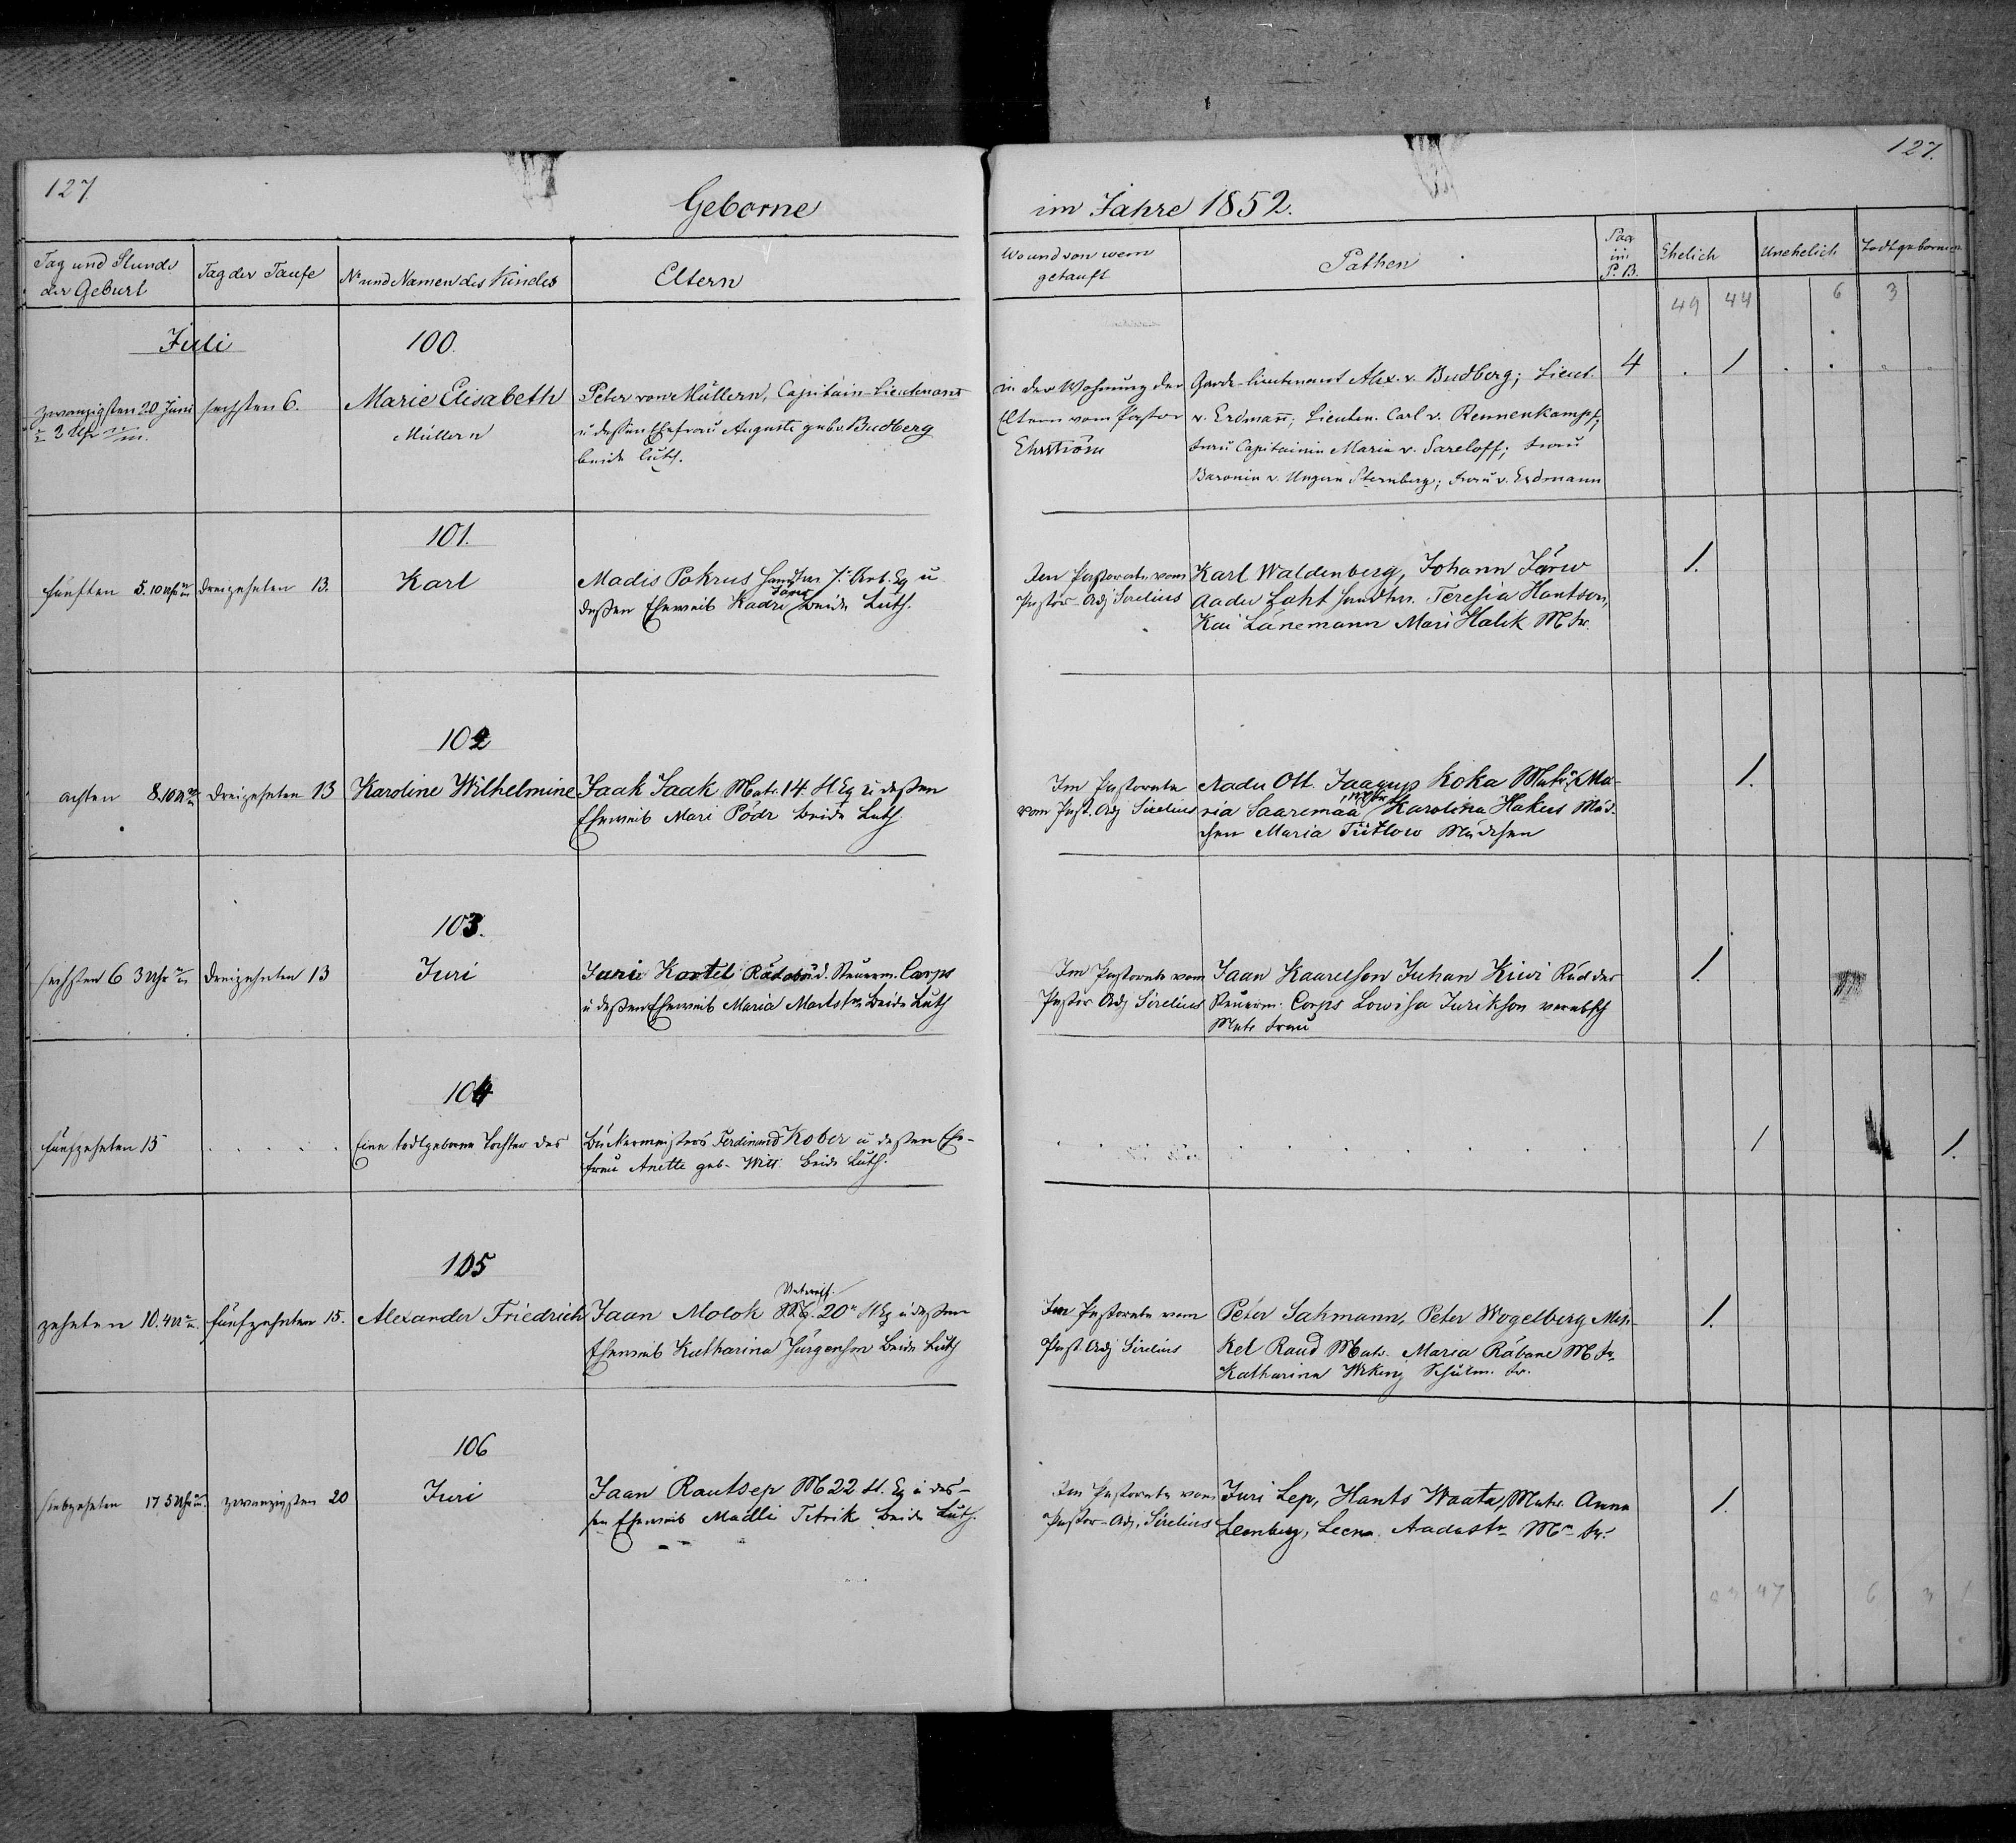 127.
127.
Geborne
im Jahre 1852.
Tag und Stunde
der Geburt
Tag der Taufe
No und Namen des Kindes
Eltern
Wo und von wem
getauft
Pathen
Pag
im
P. B.
Ehelich
Unehelich
Todtgeborne
49 44 6 3
Juli
100.
zwanzigsten 20 Juni
2 Uhr
sechsten 6.
Marie Elisabeth
Müllern
Peter von Müllern, Capitain-Lieutenant
u deßen Ehefrau Auguste geb. v. Budberg
beide luth.
in der Wohnung der
Eltern vom Pastor
Ehrström
Garde-Lieutenant Alex. v. Budberg; Lieut.
v. Erdmann; Lieuten. Carl v. Rennenkampf;
Frau Capitainin Maria v. Sareloff; Frau
Baronin v. Ungern Sternberg; Frau v. Erdmann
4 . 1 . . .
101.
fünften 5. 10 Uhr
dreizehnten 13.
Karl
Madis Pokrus Eq u
deßen Eheweib Kadri Järw beide Luth.
Im Pastorate vom
Pastor-Adj Sirelius
Karl Waldenberg, Johann Järw
Aadu Laht Teresia Hantson,
Kai Länemann Mari Halik M fr.
1.
102
achten 8. 10
dreizehnten 13
Karoline Wilhelmine
Jaak Jaak Matr. 14 Fl Eq u deßen
Eheweib Mari Pödr beide Luth.
Im Pastorate
vom Past. Adj Sirelius
Aadu Ott. Jaagup Koka Matr. Ma-
ria Saaremaa Karolina Hakus Mäd-
chen Maria Tütlow Mädchen
1.
103.
sechsten 6 3 Uhr
dreizehnten 13
Juri
Juri Kortel d. Steuerm. Corps
u deßen Eheweib Maria beide Luth
Im Pastorate vom
Pastor Adj Sirelius
Jaan Kaarelson Juhan Kiwi Rud des
Steuerm. Corps Lowisa Jurikson
Matr Frau
1.
104
fünfzehnten 15
. . . . .
Eine todtgeborne Tochter des
Bäckermeisters Ferdinand Kober u deßen Ehe-
frau Anette geb. Witt beide Luth.
1 1.
105
zehnten 10. 4
fünfzehnten 15.
Alexander Friedrich
Jaan Molok Unteroff. 20 Fl Eq u deßen
Eheweib Katharina Jürgenson beide Luth
Im Pastorate vom
Past. Adj Sirelius
Peter Sahmann, Peter Wogelberg Mih-
kel Raud Matr. Maria Räbane M fr.
Katharina fr.
1.
106
siebzehnten 17 5 Uhr
zwanzigsten 20
Juri
Jaan Rautsep M 22 Fl. Eq u des-
sen Eheweib Madli Tetrik beide Luth.
Im Pastorate vom
Pastor-Adj. Sirelius
Juri Lep, Hants Waata, Matr. Anna
Leenberg, Leena M fr.
1.
47 6 3 1